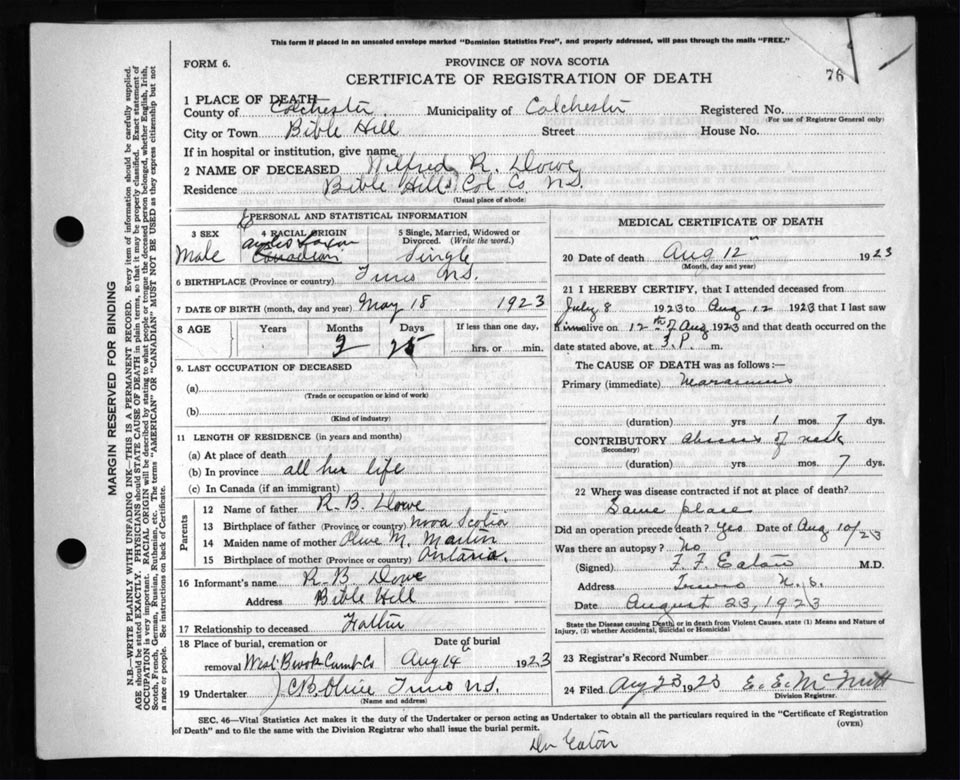 This form if placed in an unsealed envelope marked "Dominion Statistics Free", and properly addressed, will pass through the mails "FREE."
FORM 6.
PROVINCE OF NOVA SCOTIA
CERTIFICATE OF REGISTRATION OF DEATH
76
1 PLACE OF DEATH
County of Colchester Municipality of Colchester Registered No.
(For use of Registrar General only)
City or Town Bible Hill Street House No.
If in hospital or institution, give name
2 NAME OF DECEASED Wilfred R. Dowe
Residence Bible Hill Col. Co. N.S.
(Usual place of abode)
PERSONAL AND STATISTICAL INFORMATION
3 SEX 4 RACIAL ORIGIN 5 Single, Married, Widowed or Divorced. (Write the word.)
Male Anglo Saxon Canadian Single
6 BIRTHPLACE (Province or country) Truro N.S.
7 DATE OF BIRTH (month, day and year) May 18 1923
8 AGE Years Months Days If less than one day,
2 25 hrs. or min.
9. LAST OCCUPATION OF DECEASED
(a)
(Trade or occupation or kind of work)
(b)
(Kind of industry)
11 LENGTH OF RESIDENCE (in years and months)
(a) At place of death
(b) In province all her life
(c) In Canada (if an immigrant)
Parents
12 Name of father R. B. Dowe
13 Birthplace of father (Province or country) Nova Scotia
14 Maiden name of mother Olive M. Martin
15 Birthplace of mother (Province or country) Ontario.
16 Informant's name R. B. Dowe
Address Bible Hill
17 Relationship to deceased Father
18 Place of burial, cremation or removal West Brook Cumb Co Date of burial Aug 14 1923
19 Undertaker J.C.B. Olive Truro N.S.
(Name and address)
MEDICAL CERTIFICATE OF DEATH
20 Date of death Aug 12 1923
(Month, day and year)
21 I HEREBY CERTIFY, that I attended deceased from
July 8 1923 to Aug 12 1923 that I last saw
him alive on 12th of Aug 1923 and that death occurred on
date stated above, at 3 P. m.
The CAUSE OF DEATH was as follows:—
Primary (immediate) Marasmus
(duration) yrs 1 mos. 7 dys.
CONTRIBUTORY Abscess of neck
(Secondary)
(duration) yrs mos. 7 dys.
22 Where was disease contracted if not at place of death?
Same place
Did an operation precede death? Yes Date of Aug 10/23
Was there an autopsy? No
(Signed) F. F. Eaton M.D.
Address Truro N.S.
Date August 23, 1923
State the Disease causing Death, or in death from Violent Causes, state (1) Means and Nature of Injury, (2) whether Accidental, Suicidal or Homicidal
23 Registrar's Record Number
24 Filed Aug 23 1923 E. E. McNutt
Division Registrar.
SEC. 46—Vital Statistics Act makes it the duty of the Undertaker or person acting as Undertaker to obtain all the particulars required in the "Certificate of Registration of Death" and to file the same with the Division Registrar who shall issue the burial permit.
(OVER)
Dr Eaton
MARGIN RESERVED FOR BINDING
N.B.—WRITE PLAINLY WITH UNFADING INK—THIS IS A PERMANENT RECORD. Every item of information should be carefully supplied.
AGE should be stated EXACTLY. PHYSICIANS should STATE CAUSE OF DEATH in plain terms, so that it may be properly classified. Exact statement of
OCCUPATION is very important. RACIAL ORIGIN will be described by stating to what people or tongue the deceased person belonged, whether English, Irish,
Scotch, French, German, Russian, Ruthenian, etc. The terms "AMERICAN" OR "CANADIAN" MUST NOT BE USED as they express citizenship but not
a race or people. See instructions on back of Certificate.